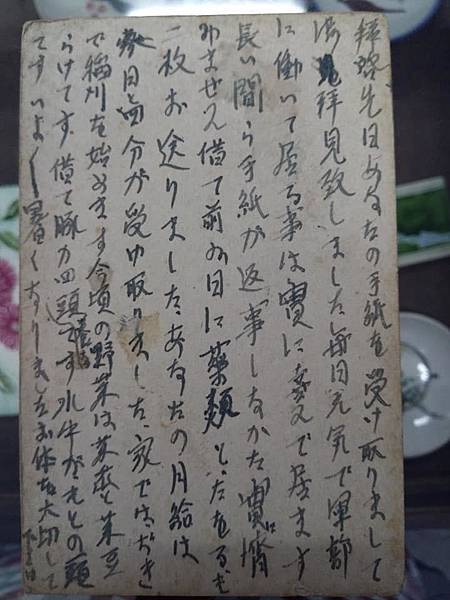 拝啓先日あなたの手紙を受け取りまして
拝見致しました毎日元気で軍部
に働いて居る事は實に喜んで居ます
長い間ら手紙が返事しなかた實に濟
みません借て前日に薬類とたをるを
二枚お送りましたあなたの月給は
日分が受け取りました家では
で稲刈を始めます今頃の野菜は菜豆
らけです借て豚カ四頭です水牛がもとの頭
ですいよ〱暑くなりましたお体を大切して
下さい